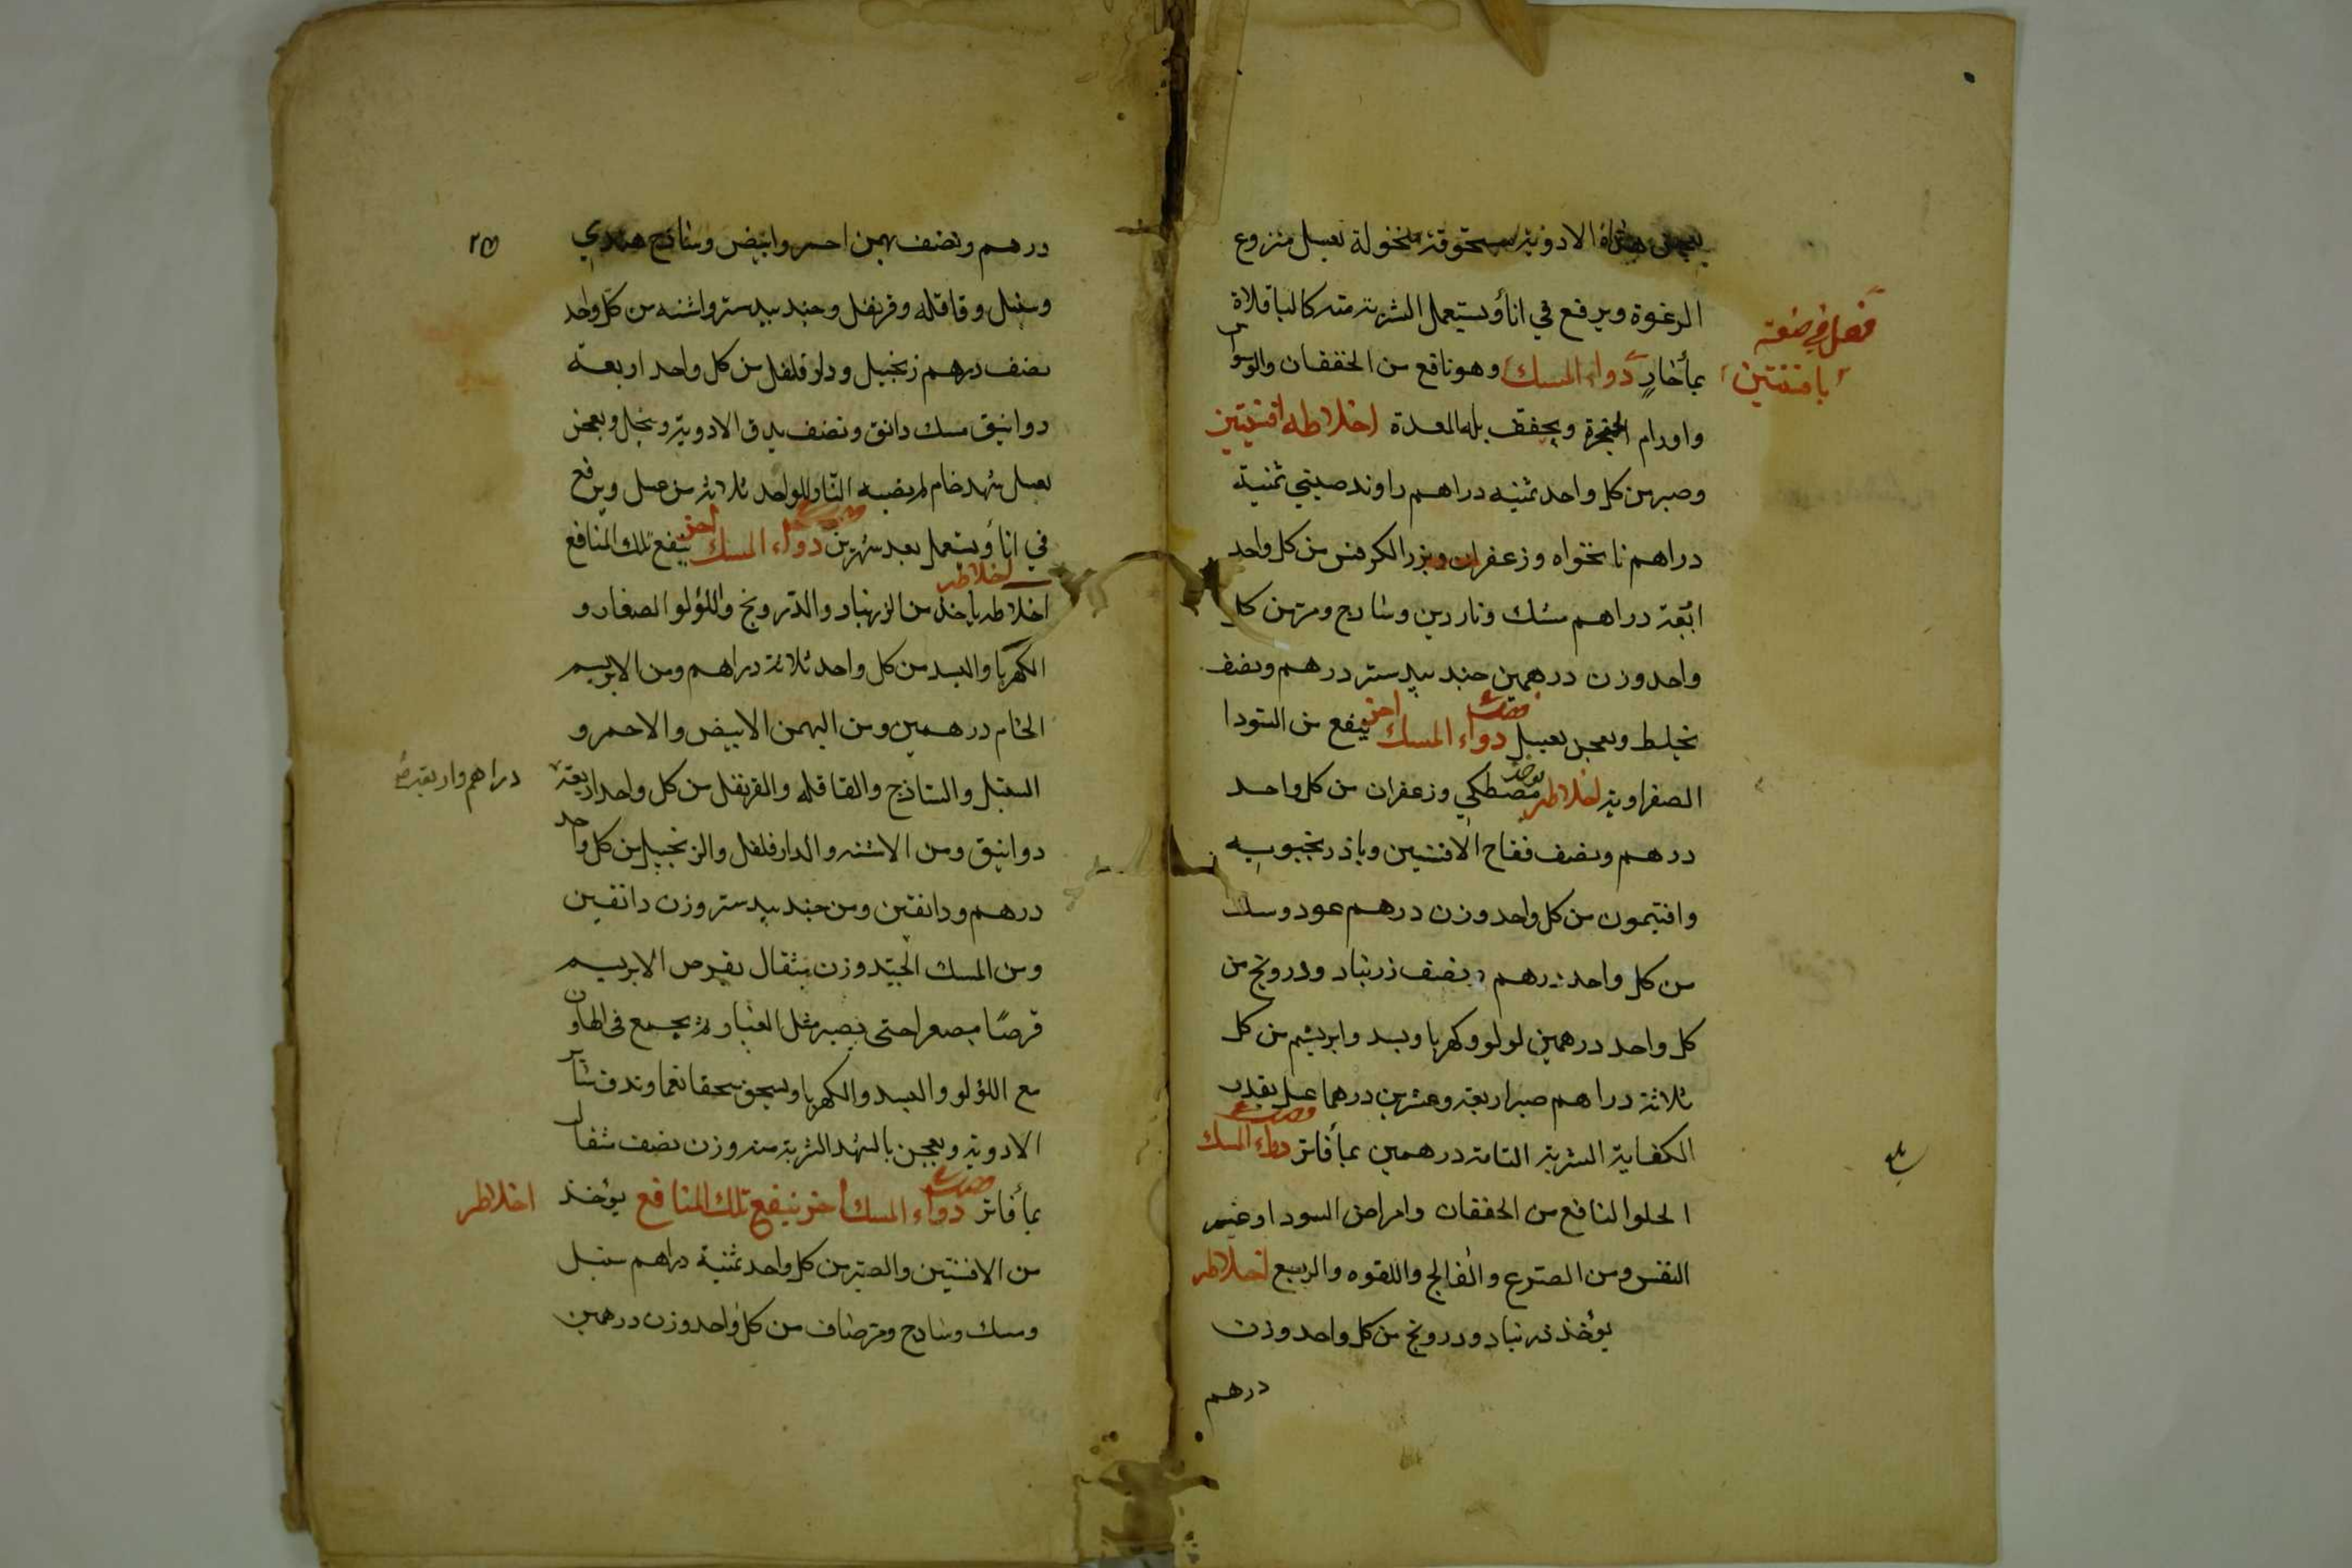 الادوية مسحوقة منخولة بعسل منزوع
الرغوة ويرفع في اناء ويستعمل الشربة منه كالباقلاة
فصل في صفة
بافسنتين
بماء حار دواء المسك وهو نافع من الخفقان والوسواس
واورام الحنجرة ويجفف بلة المعدة اخلاطه افسنتين
وصبر من كل واحد ثمنيه دراهم راوند صيني ثمنية
دراهم نانخواه وزعفران وبزر الكرفس من كل واحد
اربعة دراهم مسك وناردين وسادج ومر من كل
واحد وزن درهمين جندبيدستر درهم ونصف
يخلط ويعجن بعسل صفة دواء المسك اخر ينفع من السودا
الصفراوية اخلاطه يوخذ مصطكي وزعفران من كل واحد
درهم ونصف فقاح الافسنتين وباذرنجبويه
وافتيمون من كل واحد وزن درهم عود وسك
من كل واحد درهم ونصف زرنباد ودرونج من
كل واحد درهمين لولو وكهربا وبسد وابريشم من كل
ثلاثة دراهم صبر اربعة وعشرين درهما عسل بقدر
الكفاية الشربة التامة درهمين بماء فاتر صفة دواء المسك
الحلو النافع من الخفقان وامراض السودا وعسر
النفس ومن الصرع والفالج واللقوه والربع اخلاطه
يوخذ زرنباد ودرونج من كل واحد وزن
درهم
٢٥
درهم ونصف بهمن احمر وابيض وساذج هندي
وسنبل وقاقله وقرنفل وجندبيدستر واشنه من كل واحد
نصف درهم زنجبيل ودارفلفل من كل واحد اربعة
دوانيق مسك دانق ونصف يدق الادوية وينخل ويعجن
بعسل شهد خام لم يصبه النار للواحد ثلاثة من عسل ويرفع
في اناء ويستعمل بعد شهرين صفة دواء المسك اخر ينفع تلك المنافع
اخلاطه
اخلاطه ياخذ من الزرنباد والدرونج واللؤلو الصغار و
الكهربا والبسد من كل واحد ثلاثة دراهم ومن الابريسم
الخام درهمين ومن البهمن الابيض والاحمر و
السنبل والساذج والقاقله والقرنفل من كل واحد اربعة
دراهم واربعة
دوانيق ومن الاشنه والدارفلفل والزنجبيل من كل واحد
درهم ودانقين ومن جندبيدستر وزن دانقين
ومن المسك الجيد وزن مثقال يقرص الابريسم
قرصا مصغرا حتى يصير مثل الغبار ثم يجمع في الهاون
مع اللؤلو والبسد والكهربا ويسحق سحقا نعما وتدق سائر
الادوية ويعجن بالشهد الشربة منه وزن نصف مثقال
بماء فاتر صفة دواء المسك اخر ينفع تلك المنافع يؤخذ
اخلاطه
من الافسنتين والصبر من كل واحد ثمنية دراهم سنبل
ومسك وسادج ومر صاف من كل واحد وزن درهمين